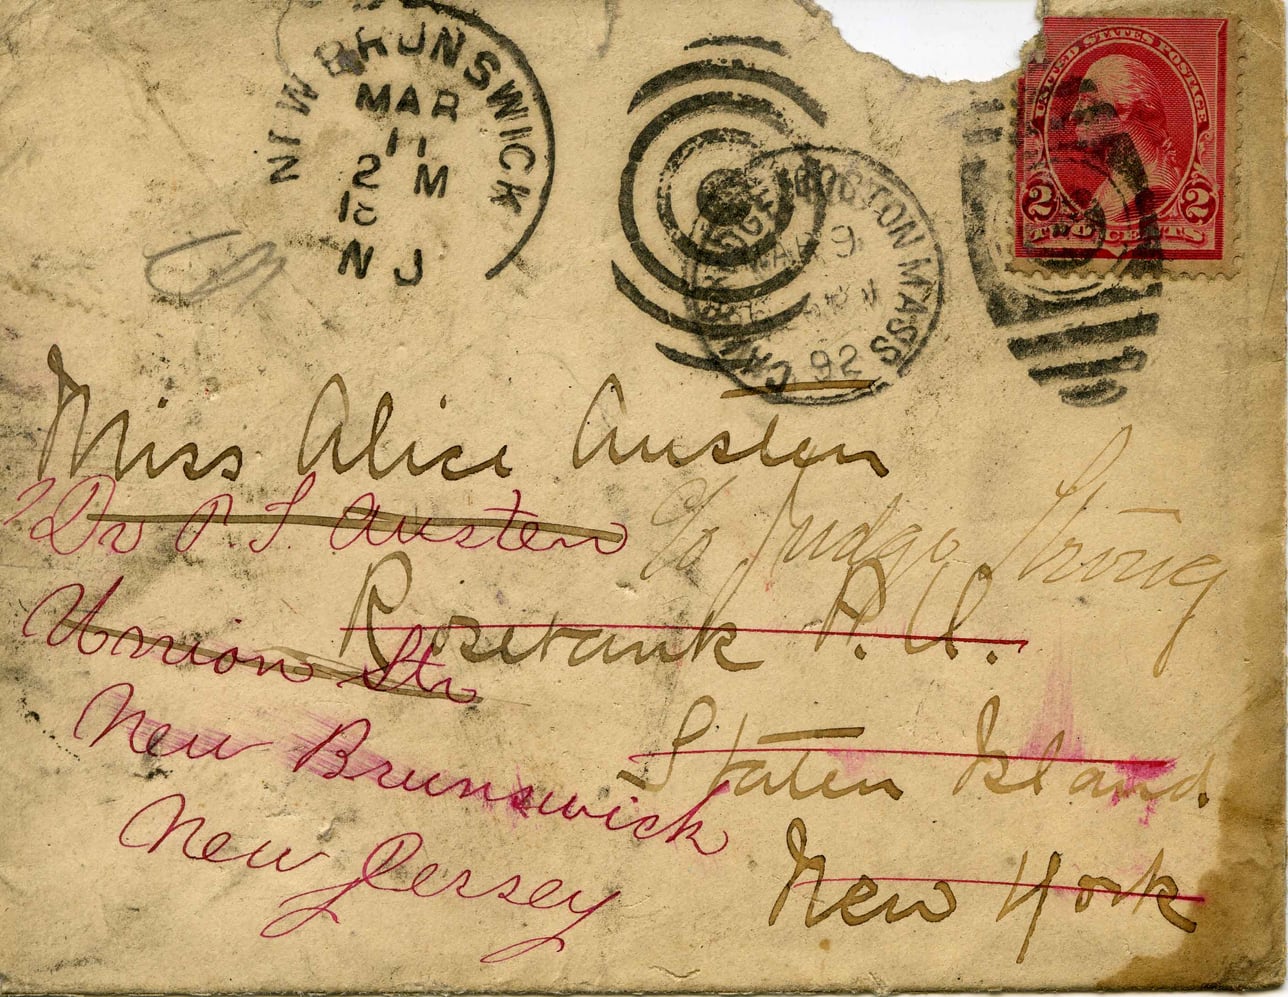 NEW BRUNSWICK
MAR
11
2 M
18
N J
CAMBRIDGE BOSTON MASS
MAR 9
92
UNITED STATES POSTAGE
2 2
TWO CENTS
Miss Alice Austen
Dr P. T Austen
c/o Judge Strong
Rosebank P. O.
Union Str
Staten Island.
New Brunswick
New York
New Jersey